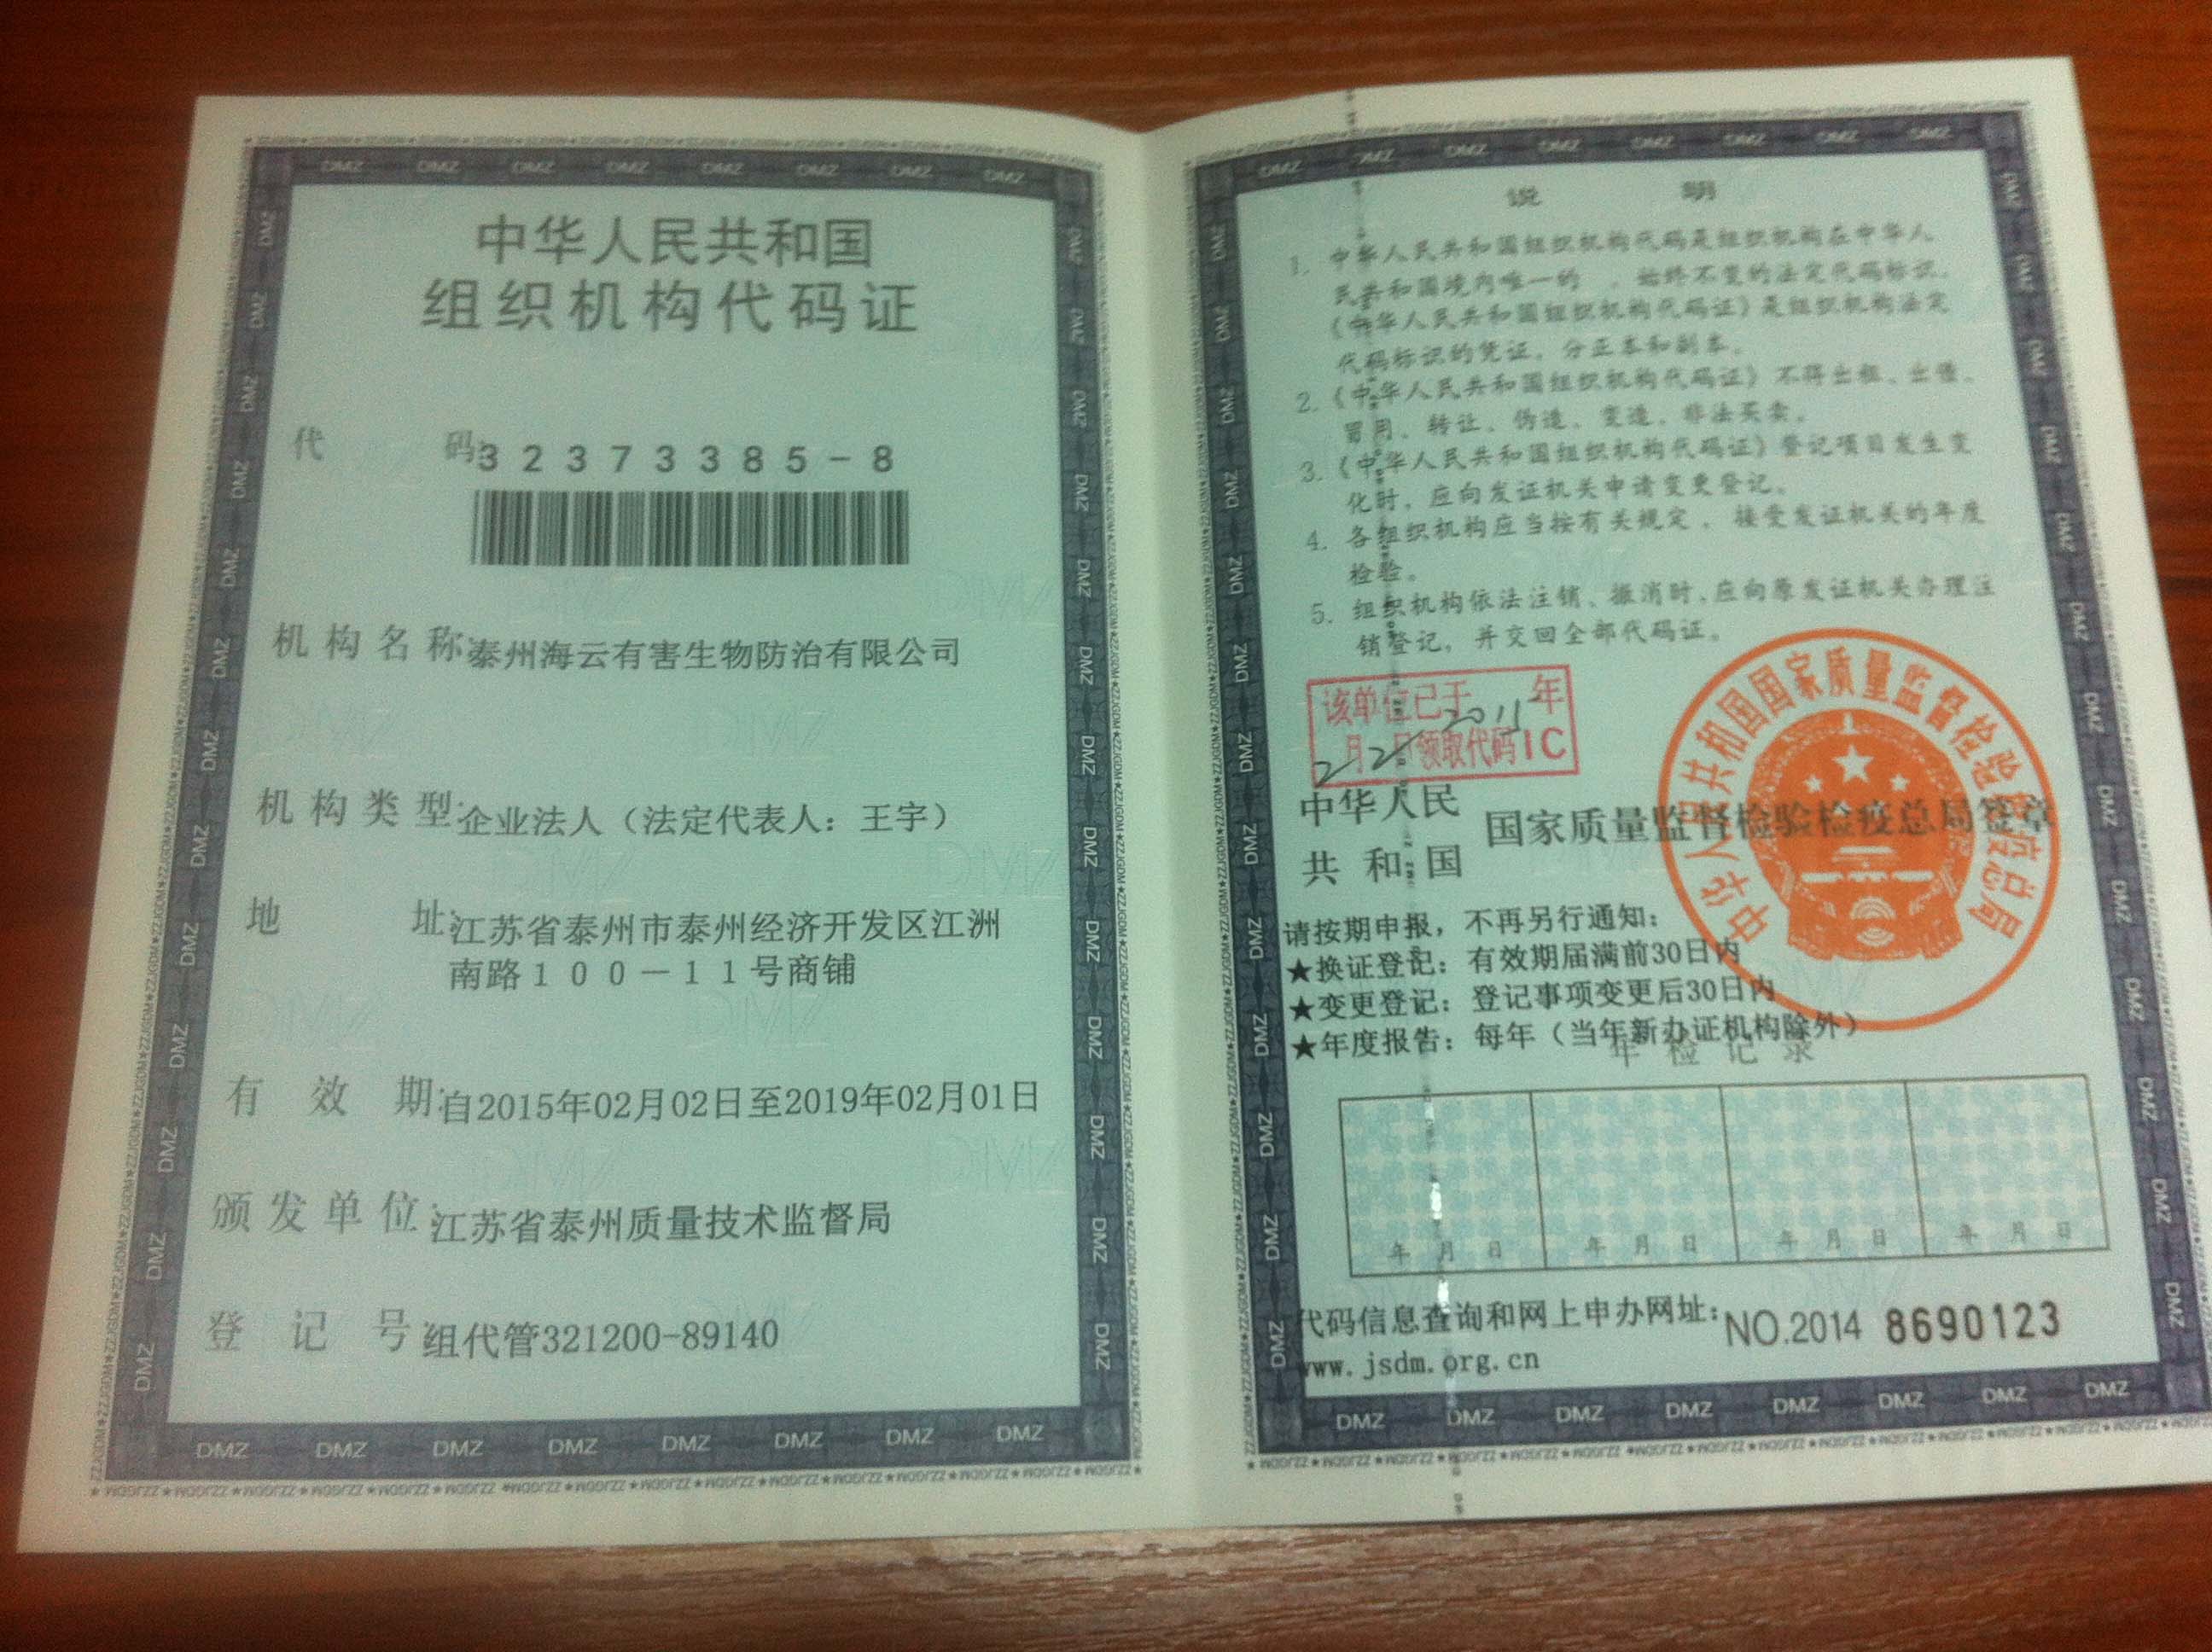 中华人民共和国
组织机构代码证
代 码:32373385-8
机构名称:泰州海云有害生物防治有限公司
机构类型:企业法人（法定代表人：王宇）
地 址:江苏省泰州市泰州经济开发区江洲
南路１００－１１号商铺
有 效 期:自2015年02月02日至2019年02月01日
颁发单位:江苏省泰州质量技术监督局
登 记 号:组代管321200-89140
说 明
1. 中华人民共和国组织机构代码是组织机构在中华人
民共和国境内唯一的 、始终不变的法定代码标识，
《中华人民共和国组织机构代码证》是组织机构法定
代码标识的凭证，分正本和副本。
2.《中华人民共和国组织机构代码证》不得出租、出借、
冒用、转让、伪造、变造、非法买卖。
3.《中华人民共和国组织机构代码证》登记项目发生变
化时，应向发证机关申请变更登记。
4. 各组织机构应当按有关规定，接受发证机关的年度
检验。
5. 组织机构依法注销、撤消时，应向原发证机关办理注
销登记，并交回全部代码证。
该单位已于2015年
2月2日领取代码IC
中华人民
共和国 国家质量监督检验检疫总局签章
中华人民共和国国家质量监督检验检疫总局
请按期申报，不再另行通知：
★换证登记：有效期届满前30日内
★变更登记：登记事项变更后30日内
★年度报告：每年（当年新办证机构除外）
年 检 记 录
年 月 日 年 月 日 年 月 日 年 月 日
代码信息查询和网上申办网址：
www.jsdm.org.cn
NO.2014 8690123